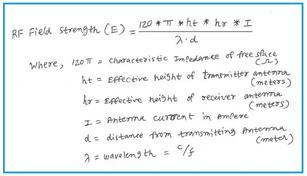 RF Field Strength (E) = 120 * π * ht * hr * I / λ · d
Where, 120π = Characteristic Impedance of free space (Ω)
ht = Effective height of transmitter antenna (meters)
hr = Effective height of receiver antenna (meters)
I = Antenna current in Ampere
d = distance from transmitting Antenna (meter)
λ = wavelength = c/f